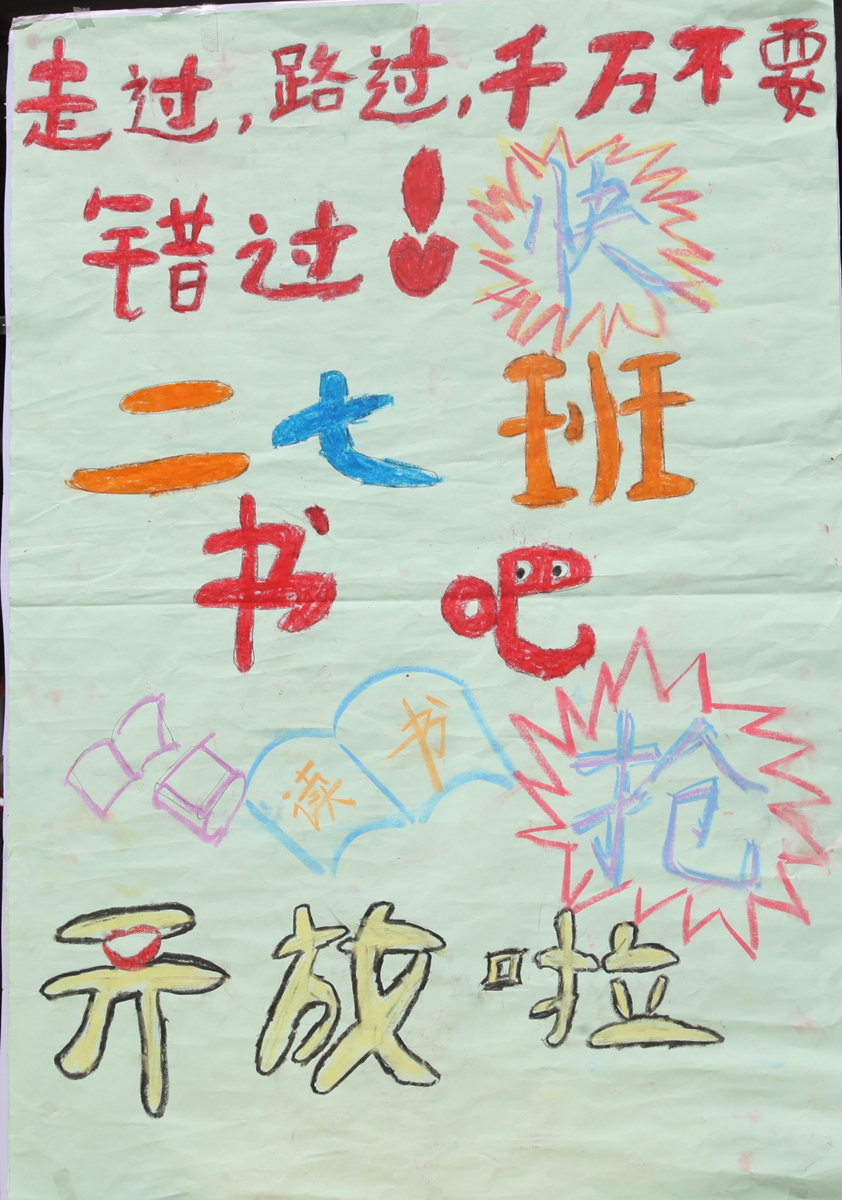 走过,路过,千万不要
错过!
快
二七班
书吧
读书
抢
开放啦